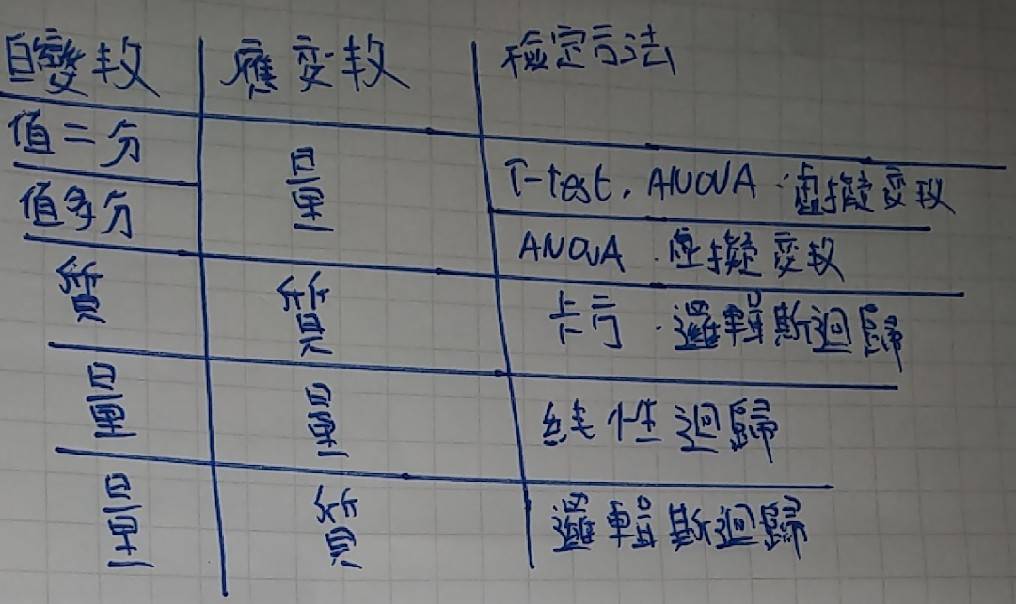 自變數 應變數 檢定方法
值二分 量 T-test, ANOVA·虛擬變數
值多分 ANOVA·虛擬變數
質 質 卡方·邏輯斯迴歸
量 量 線性迴歸
量 質 邏輯斯迴歸